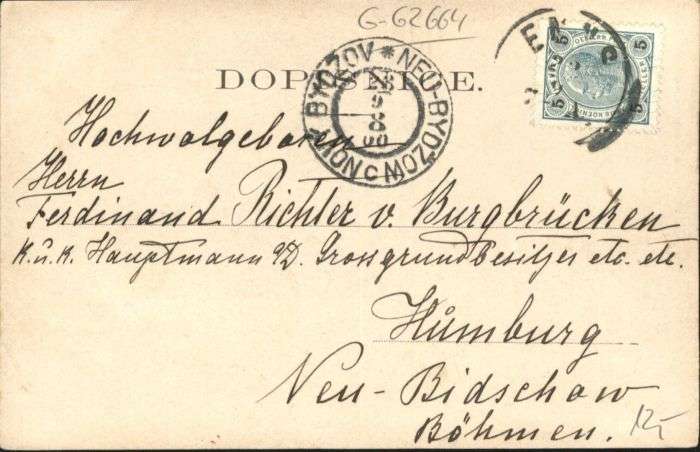 G-62664
DOPISNICE.
NEU-BYDŽOV * NOVÝ BYDŽOV
5 5
5 5
Hochwolgeboren
Herrn
Ferdinand Richter v. Burgbrücken
K. u. K. Hauptmann a/D. Grossgrundbesitzer etc. etc.
Humburg
Neu-Bidschow
Böhmen.
12,-